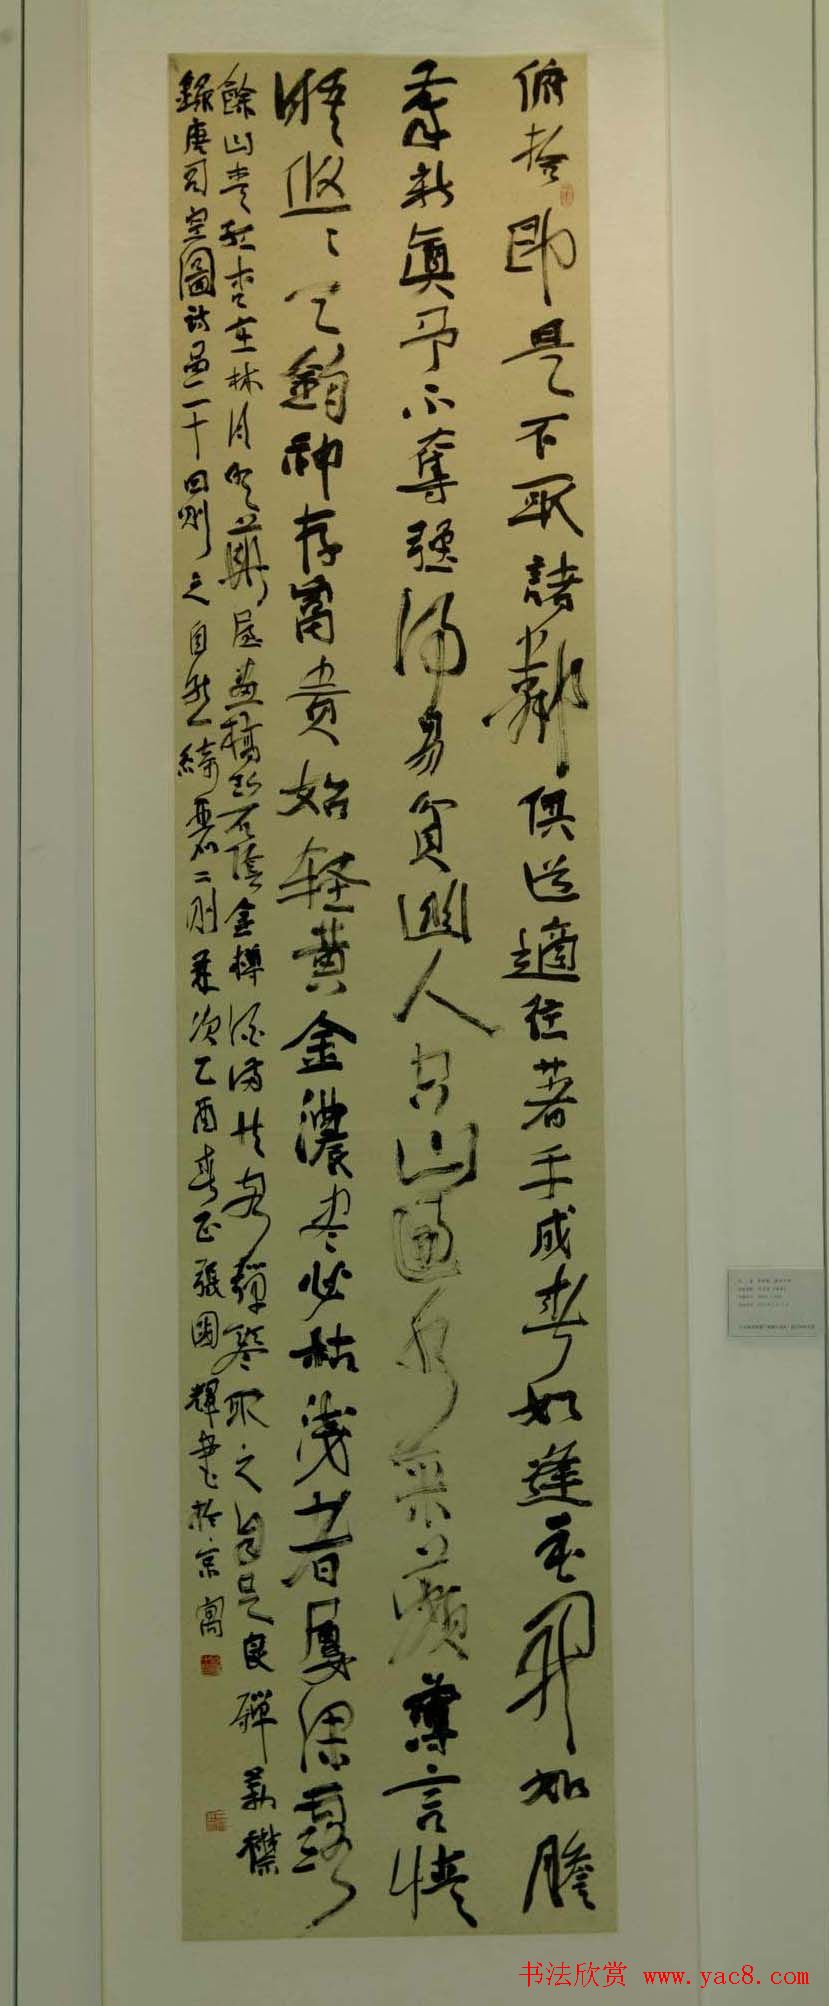 俯拾即是不取諸鄰俱道適往著手成春如逢花開如瞻
歲新真予不奪強得易貧幽人空山過水采蘋薄言情
悟悠〻天鈞神存富貴始輕黃金濃盡必枯淺者屢深露
餘山青紅杏在林月明華屋畫橋碧陰金樽酒滿共客彈琴取之自足良殫美襟
錄唐司空圖詩品二十四則之自然綺麗二則乙酉春正張國輝書於京寓
书法欣赏 www.yac8.com